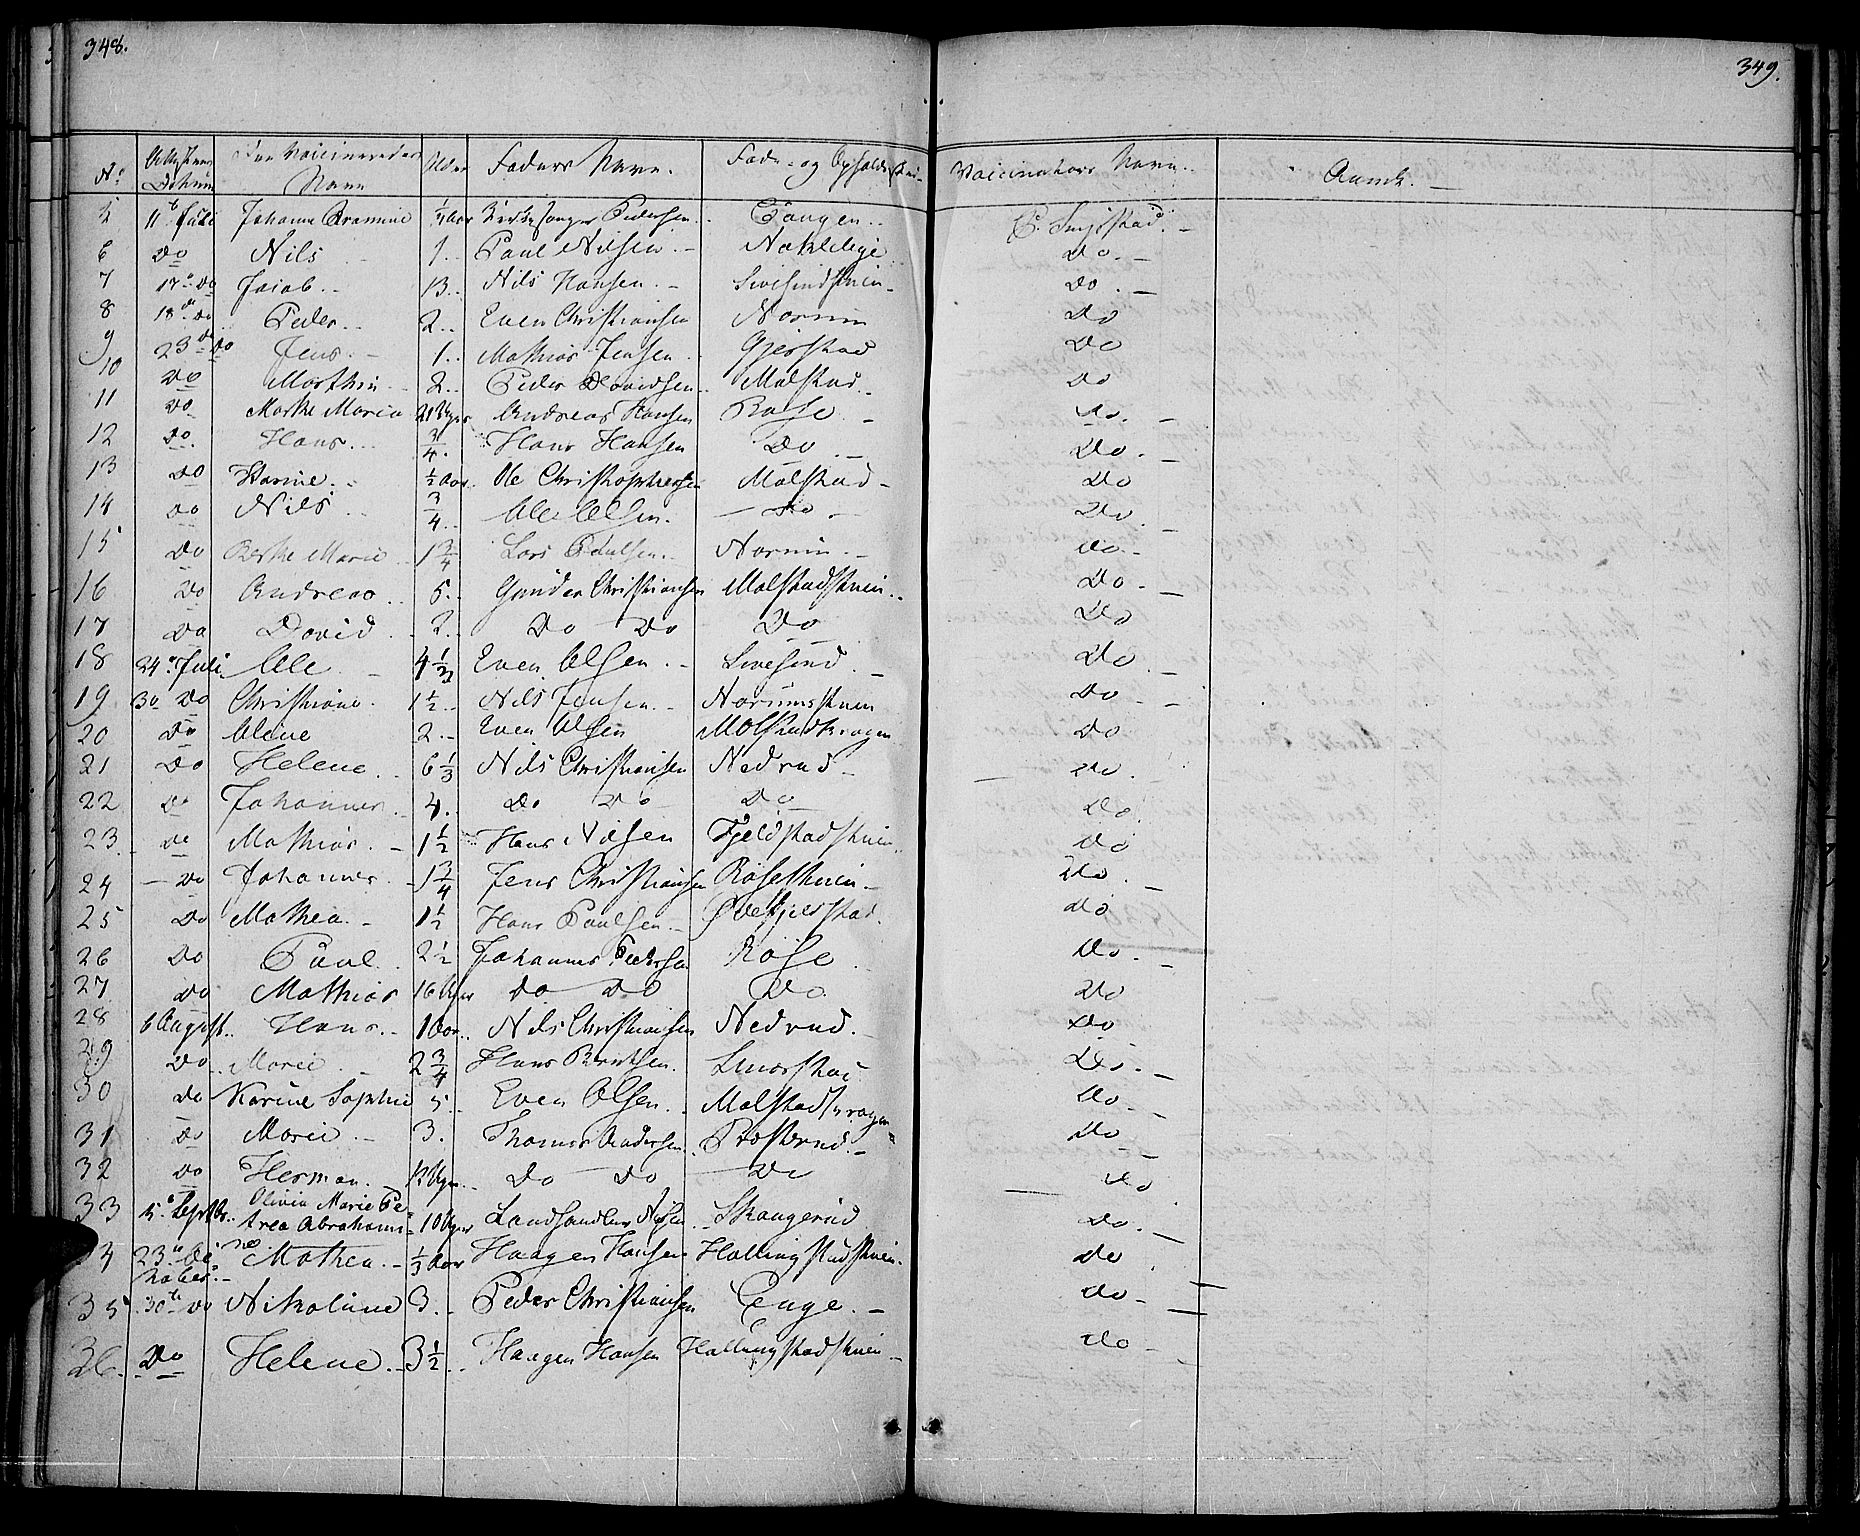 348.
349.
No Attestens Datum Den Vaccineredes Navn Alder Faders Navn. Føde- og Opholds Sted Vaccinateurs Navn. Anmk.
5 11te Juli Johanne Bramine 1/4 Aar Kirkesanger Pedersen. Tangen..
6 Do Nils 1. Paul Nilsen. Do.
7 17de Do Jacob. 13. Nils Hansen. Do.
8 18de Do Peder. 2. Even Christiansen Norum Do
9 23de Do Jens. 1. Mathias Jensen. Gjerstad Do
10 Do Marthin 2. Peder Davidsen. Molstad. Do
11 Do Marthe Maria 21 Uger Andreas Hansen Røise Do.
12 Do. Hans. 3/4. Hans Hansen Do Do.
13 Do Karine. 1/2 Aar. Ole Christophersen Molstad Do
14 Do Nils 3/4. Ole Olsen. Do Do.
15 Do Berthe Marie 1 3/4 Lars Paulsen. Norum. Do.
16 Do Andreas 5. Gunder Christiansen Molstadskuien. Do.
17 Do David 2. Do Do Do Do
18 24de Juli Ole 4 1/2 Even Olsen. Sivesind. Do.
19 30 Do Christiane. 1 1/2. Nils Jensen. Norumskuien Do.
20 Do Oline 2. Even Olsen Molstadkragen Do
21 Do Helene 6 1/3 Nils Christiansen Nedrud. Do.
22 Do Johannes. 4. Do Do Do Do.
23. Do Mathias. 1 1/2 Hans Nilsen Fjeldstadskuien. Do
24 Do Johannes. 1 3/4 Jens Christiansen Røiseskuien Do.
25 Do Mathea. 1 1/2 Hans Paulsen. Do
26 Do Paul. 2 1/2 Johannes Pedersen Røise Do.
27 Do Mathias 16 Uger Do Do Do. Do
28 6 August. Hans. 1 Aar. Nils Christiansen Nedrud. Do
29 Do Marie 2 3/4 Hans Berntsen. Do.
30 Do Karine Sophie 5. Even Olsen. Molstadkragen Do.
31 Do Marie. 3. Thomas Andersen. Prosterud. Do
32 Do Herman. 12 Uger. Do Do Do Do.
33 15de Septbr. Olivia Marie Pe-
trea Abrahami-
ne 10 Uger Landhandler Nilsen. Skaugerud Do.
34 23de Oc-
tober. Mathea. 1/3 Aar Haagen Hansen Hallingstadskuien. Do
35 30te Do Nikoline 3. Peder Christiansen Enge. Do
36. Do Helene. 3 1/2. Haagen Hansen Hallingstadskuien Do